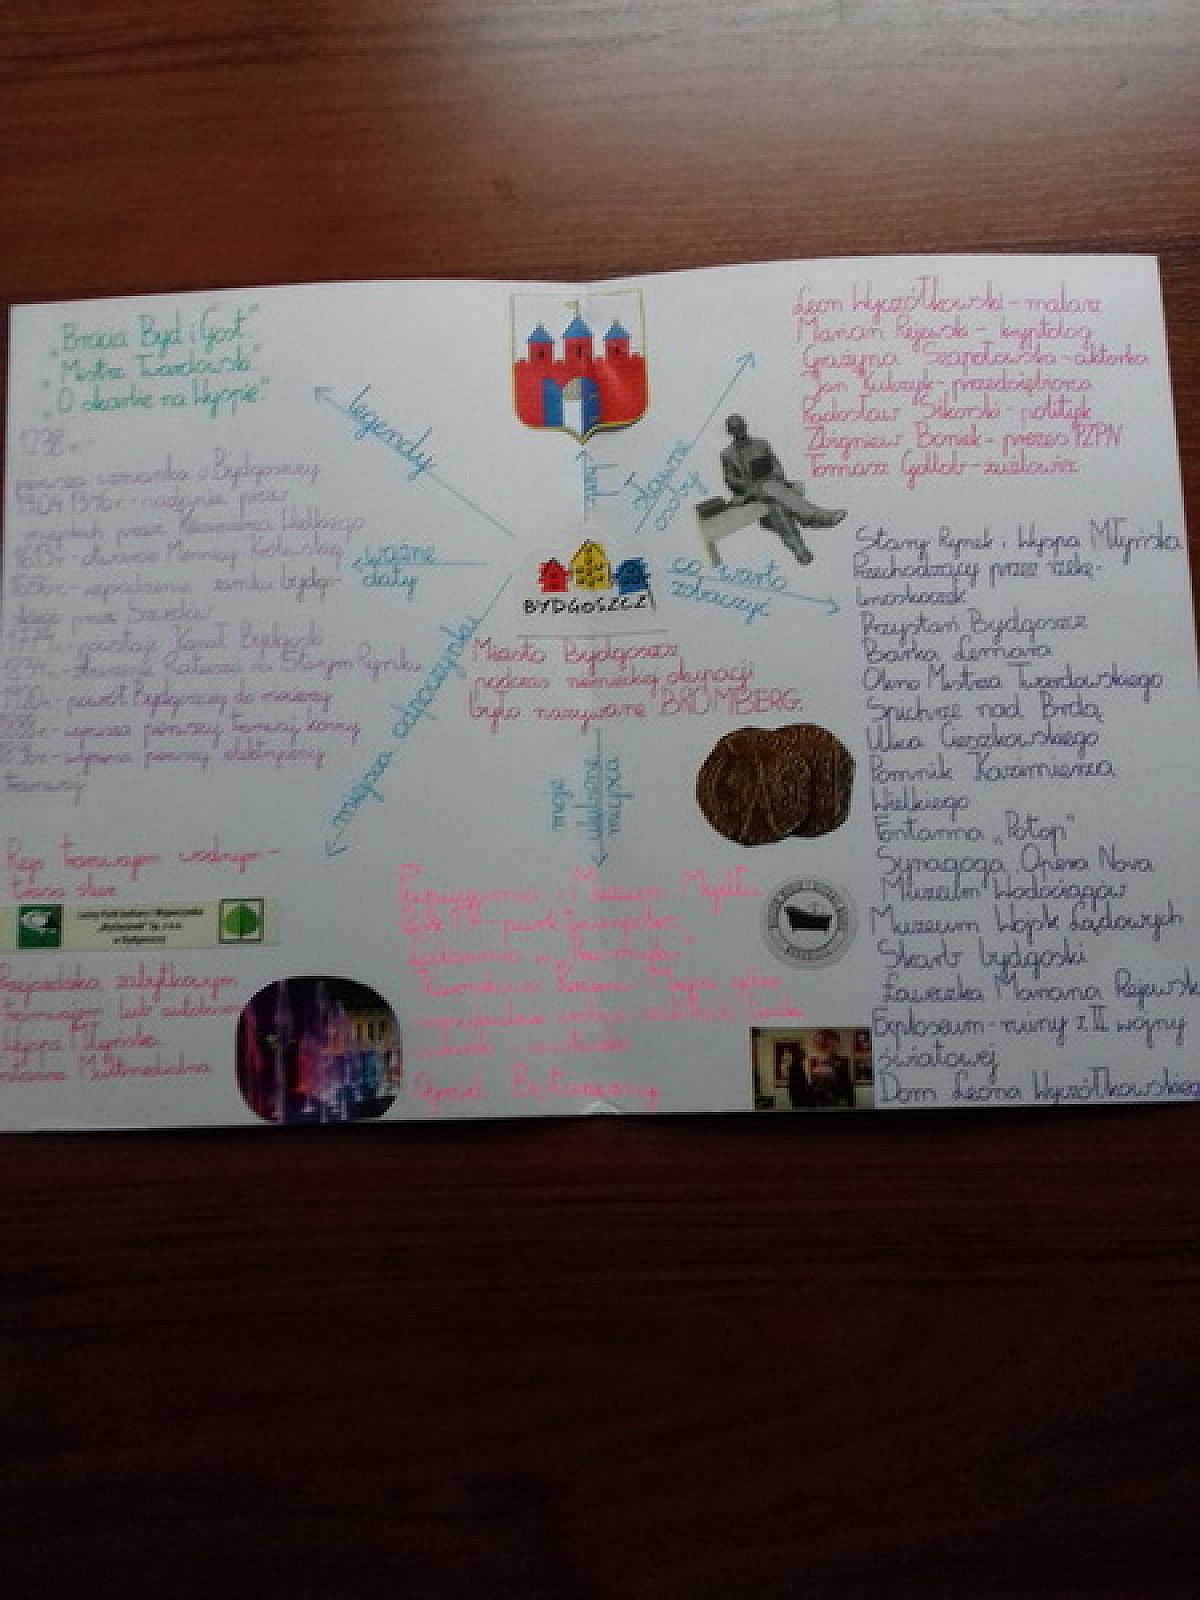 "Bracia Byd i Gost"
"Mistrz Twardowski"
"O skarbie na Wyspie"
legendy
herb
sławne
osoby
Leon Wyczółkowski - malarz
Marian Rejewski - kryptolog
Grażyna Szapołowska - aktorka
Jan Kulczyk - przedsiębiorca
Radosław Sikorski - polityk
Zbigniew Boniek - prezes PZPN
Tomasz Gollob - żużlowiec
1238 r. -
pierwsza wzmianka o Bydgoszczy
19.04.1346 r. - nadanie praw
miejskich przez Kazimierza Wielkiego
otwarcie Mennicy
1656 r. - wysadzenie zamku bydgo-
przez Szwedów
1774 r. - powstaje Kanał Bydgoski
Ratusza na Starym Rynku
1920 r. - powrót Bydgoszczy do macierzy
1888 r. - pierwszy tramwaj konny
1896 r. - pierwszy elektryczny
tramwaj
ważne
daty
BYDGOSZCZ
co warto
zobaczyć
Stary Rynek i Wyspa Młyńska
Przechodzący przez rzekę -
linoskoczek
Przystań Bydgoszcz
Barka Lemara
Okno Mistrza Twardowskiego
Spichrze nad Brdą
Ulica Cieszkowskiego
Pomnik Kazimierza
Wielkiego
Fontanna "Potop"
Synagoga, Opera Nova
Muzeum Wodociągów
Muzeum Wojsk Lądowych
Skarb bydgoski
Ławeczka Mariana Rejewsk
Exploseum - ruiny z II wojny
światowej
Dom Leona Wyczółkowskiego
Miasto Bydgoszcz
podczas niemieckiej okupacji
było nazywane BROMBERG.
miejsca odpoczynku
Rejs tramwajem wodnym -
Przejażdżka zabytkowym
tramwajem lub autobusem
Wyspa Młyńska
Fontanna Multimedialna
moje
ulubione
miejsca
Muzeum Mydła
park trampolin
Ogród Botaniczny